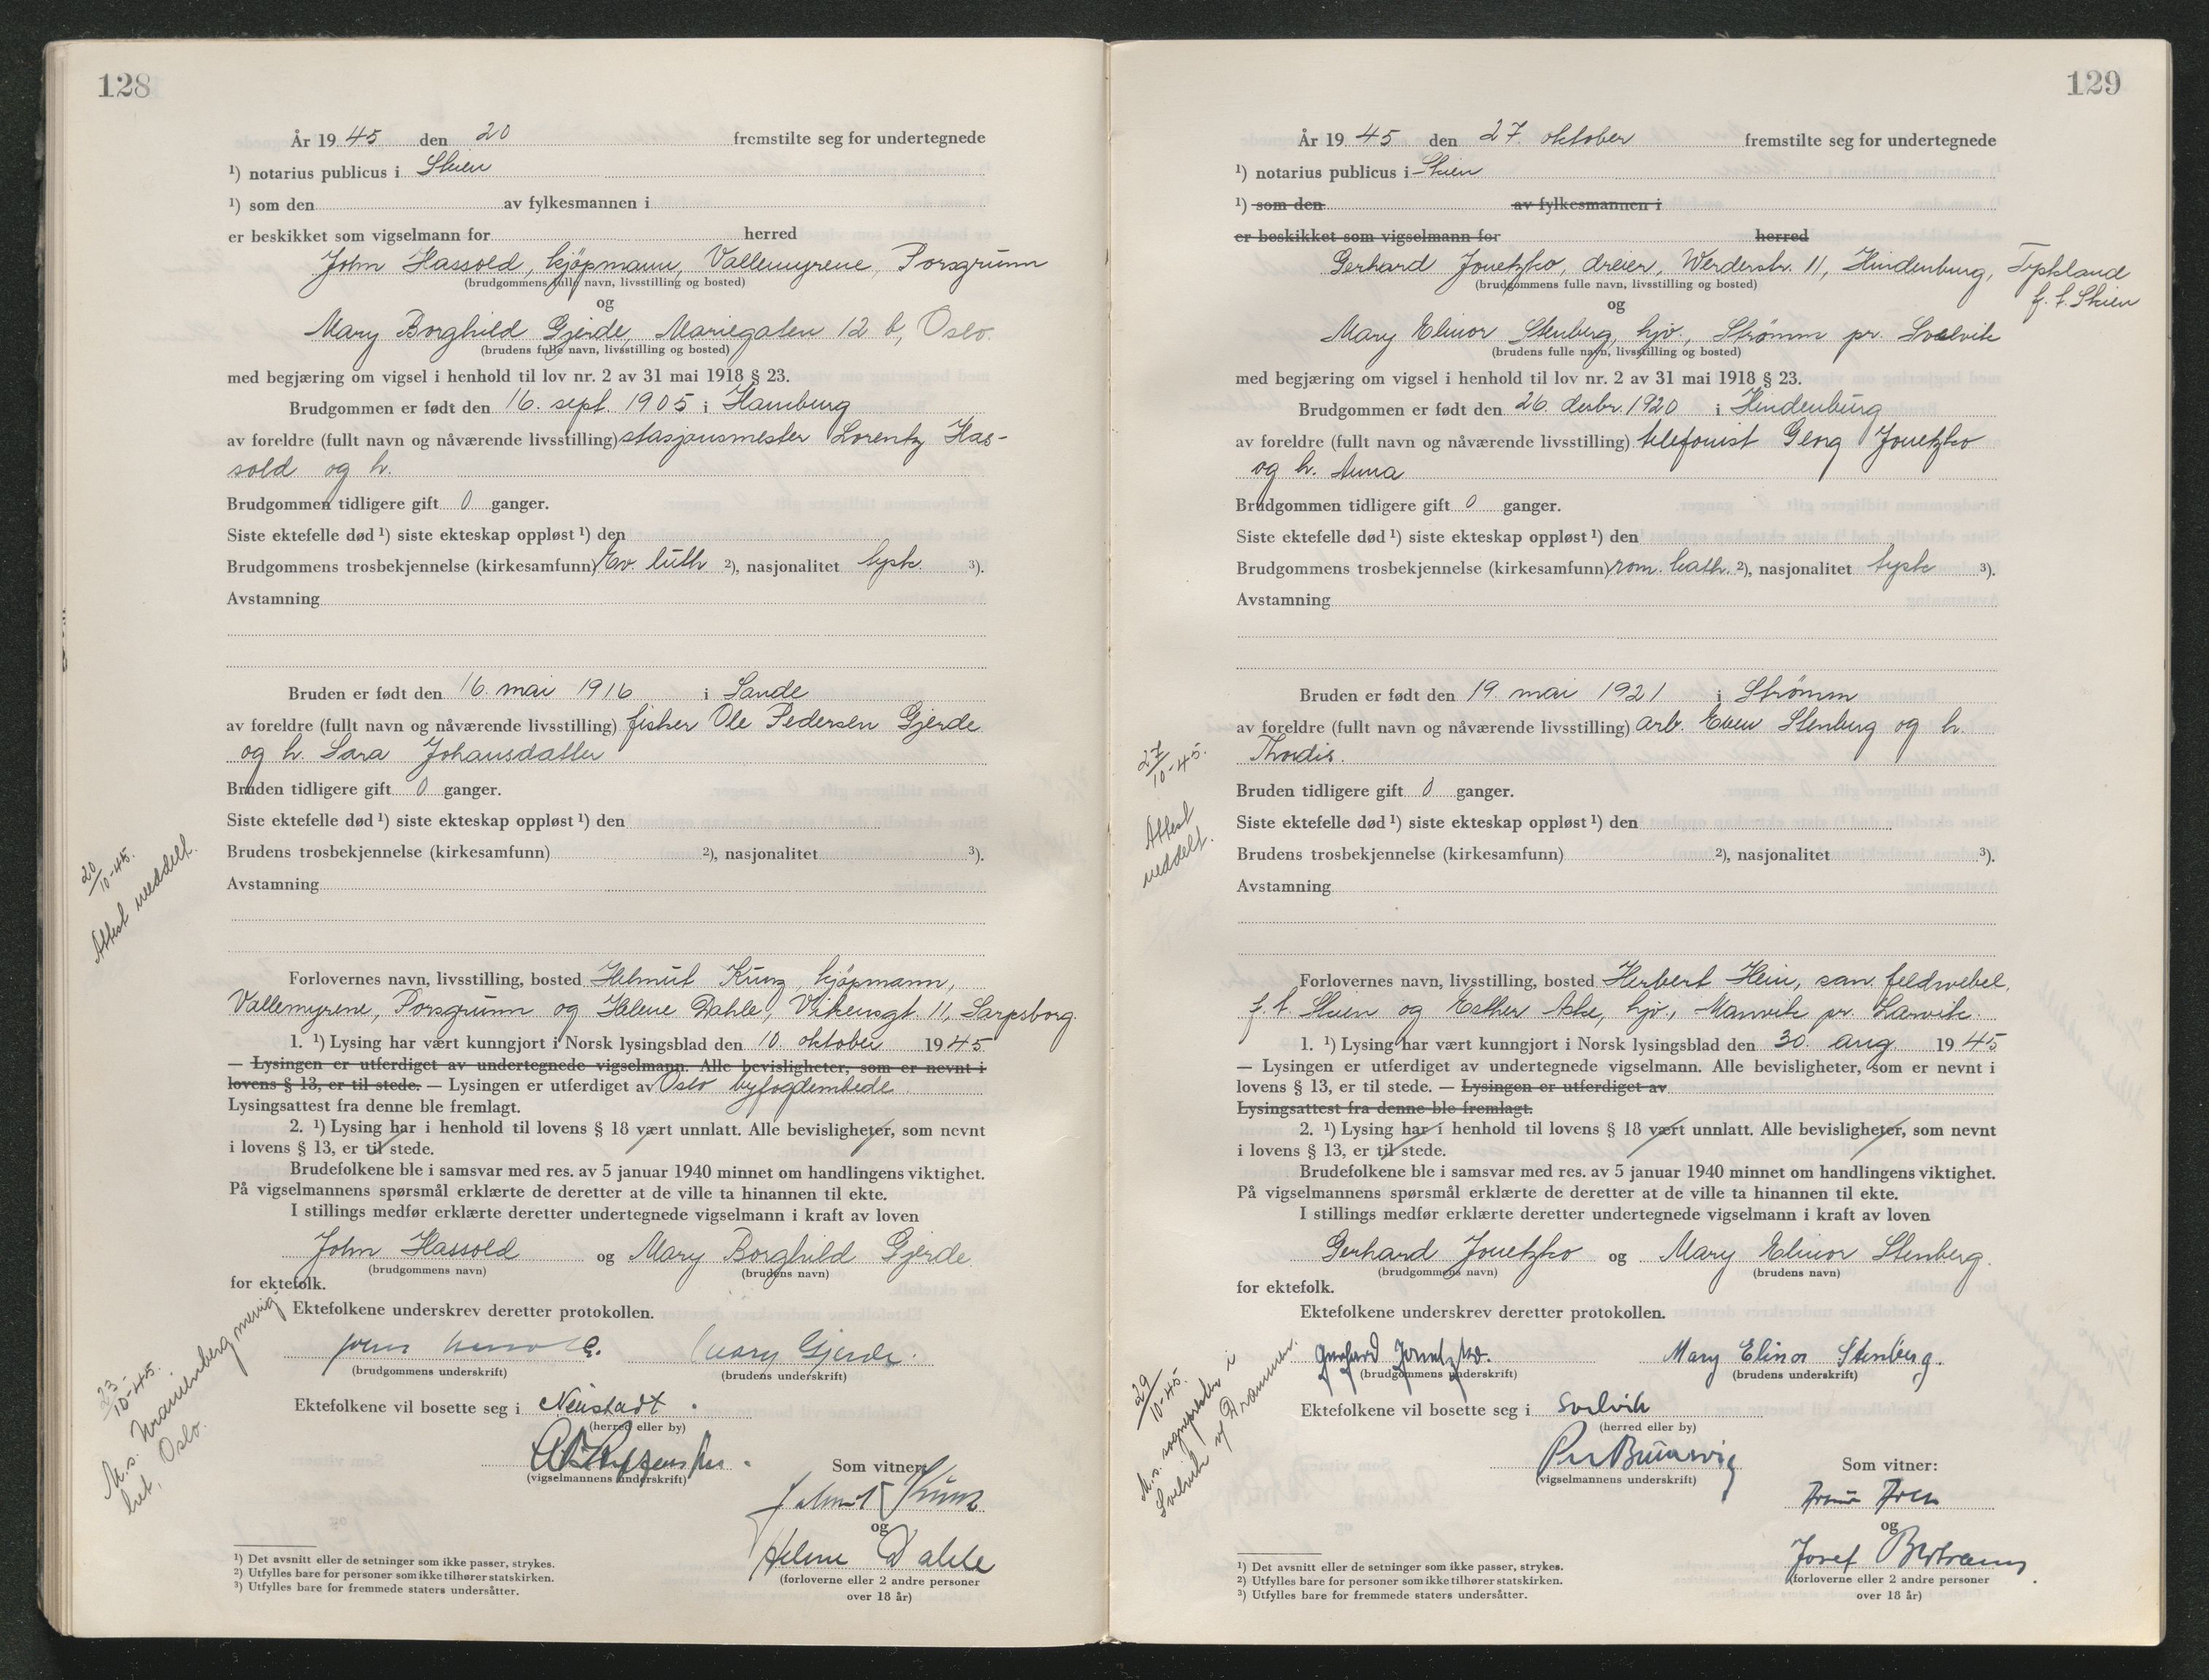 128
År 19 45 den 20 fremstilte seg for undertegnede
¹) notarius publicus i Skien
¹) som den av fylkesmannen i
er beskikket som vigselmann for herred
John Hassold, kjøpmann, Vallemyrene, Porsgrunn
(brudgommens fulle navn, livsstilling og bosted)
og
Mary Borghild Gjerde, Mariegaten 12 b, Oslo.
(brudens fulle navn, livsstilling og bosted)
med begjæring om vigsel i henhold til lov nr. 2 av 31 mai 1918 § 23.
Brudgommen er født den 16. sept. 1905 i Hamburg
av foreldre (fullt navn og nåværende livsstilling) stasjonsmester Lorentz Has-
sold og h.
Brudgommen tidligere gift 0 ganger.
Siste ektefelle død ¹) siste ekteskap oppløst ¹) den
Brudgommens trosbekjennelse (kirkesamfunn) Ev. luth ²), nasjonalitet tysk. ³).
Avstamning
Bruden er født den 16. mai 1916 i Sande
av foreldre (fullt navn og nåværende livsstilling) fisker Ole Pedersen Gjerde
og h. Sara Johansdatter
Bruden tidligere gift 0 ganger.
Siste ektefelle død ¹) siste ekteskap oppløst ¹) den
Brudens trosbekjennelse (kirkesamfunn) ²), nasjonalitet ³).
Avstamning
20/10-45.
Attest meddelt.
Forlovernes navn, livsstilling, bosted Helmut Kunz, kjøpmann,
Vallemyrene, Porsgrunn og Helene Dahle, Vikensgt. 11, Sarpsborg.
1. ¹) Lysing har vært kunngjort i Norsk lysingsblad den 10. oktober 19 45
— Lysingen er utferdiget av undertegnede vigselmann. Alle bevisligheter, som er nevnt i
lovens § 13, er til stede. — Lysingen er utferdiget av Oslo byfogdembede.
Lysingsattest fra denne ble fremlagt.
2. ¹) Lysing har i henhold til lovens § 18 vært unnlatt. Alle bevisligheter, som nevnt
i lovens § 13, er til stede.
Brudefolkene ble i samsvar med res. av 5 januar 1940 minnet om handlingens viktighet.
På vigselmannens spørsmål erklærte de deretter at de ville ta hinannen til ekte.
I stillings medfør erklærte deretter undertegnede vigselmann i kraft av loven
John Hassold og Mary Borghild Gjerde
(brudgommens navn) (brudens navn)
for ektefolk.
Ektefolkene underskrev deretter protokollen.
Mary Gjerde.
(brudgommens underskrift) (brudens underskrift)
Ektefolkene vil bosette seg i Neustadt.
(herred eller by)
(vigselmannens underskrift)
23/10-45.
M.s. Uranienborg menig
het, Oslo.
Som vitner:
Helmut Kunz
og
Helene Dahle
(forloverne eller 2 andre personer
over 18 år)
¹) Det avsnitt eller de setninger som ikke passer, strykes.
²) Utfylles bare for personer som ikke tilhører statskirken.
³) Utfylles bare for fremmede staters undersåtter.
129
År 19 45 den 27. oktober fremstilte seg for undertegnede
¹) notarius publicus i Skien
¹) som den av fylkesmannen i
er beskikket som vigselmann for herred
Gerhard Jonetzko, dreier, Werderstr. 11, Hindenburg, Tyskland
f. t. Skien
(brudgommens fulle navn, livsstilling og bosted)
og
Mary Elinor Stenberg, hjv., Strømm pr. Svelvik
(brudens fulle navn, livsstilling og bosted)
med begjæring om vigsel i henhold til lov nr. 2 av 31 mai 1918 § 23.
Brudgommen er født den 26. desbr. 1920 i Hindenburg
av foreldre (fullt navn og nåværende livsstilling) telefonist Georg Jonetzko
og h. Anna
Brudgommen tidligere gift 0 ganger.
Siste ektefelle død ¹) siste ekteskap oppløst ¹) den
Brudgommens trosbekjennelse (kirkesamfunn) rom. kath. ²), nasjonalitet tysk ³).
Avstamning
Bruden er født den 19. mai 1921 i Strømm
av foreldre (fullt navn og nåværende livsstilling) arb. Even Stenberg og h.
Thordis.
Bruden tidligere gift 0 ganger.
Siste ektefelle død ¹) siste ekteskap oppløst ¹) den
Brudens trosbekjennelse (kirkesamfunn) ²), nasjonalitet ³).
Avstamning
27/10-45.
Attest
meddelt.
Forlovernes navn, livsstilling, bosted Herbert Hein, san. feldwebel,
f. t. Skien og Esther Aske, hjv., Manvik pr. Larvik.
1. ¹) Lysing har vært kunngjort i Norsk lysingsblad den 30. aug 19 45
— Lysingen er utferdiget av undertegnede vigselmann. Alle bevisligheter, som er nevnt i
lovens § 13, er til stede. — Lysingen er utferdiget av
Lysingsattest fra denne ble fremlagt.
2. ¹) Lysing har i henhold til lovens § 18 vært unnlatt. Alle bevisligheter, som nevnt
i lovens § 13, er til stede.
Brudefolkene ble i samsvar med res. av 5 januar 1940 minnet om handlingens viktighet.
På vigselmannens spørsmål erklærte de deretter at de ville ta hinannen til ekte.
I stillings medfør erklærte deretter undertegnede vigselmann i kraft av loven
Gerhard Jonetzko og Mary Elinor Stenberg.
(brudgommens navn) (brudens navn)
for ektefolk.
Ektefolkene underskrev deretter protokollen.
Gerhard Jonetzko. Mary Elinor Stenberg.
(brudgommens underskrift) (brudens underskrift)
Ektefolkene vil bosette seg i Svelvik
(herred eller by)
(vigselmannens underskrift)
29/10-45.
M.s. sognepresten i
Svelvik v/ Drammen.
Som vitner:
og
Josef Bertrams
(forloverne eller 2 andre personer
over 18 år)
¹) Det avsnitt eller de setninger som ikke passer, strykes.
²) Utfylles bare for personer som ikke tilhører statskirken.
³) Utfylles bare for fremmede staters undersåtter.